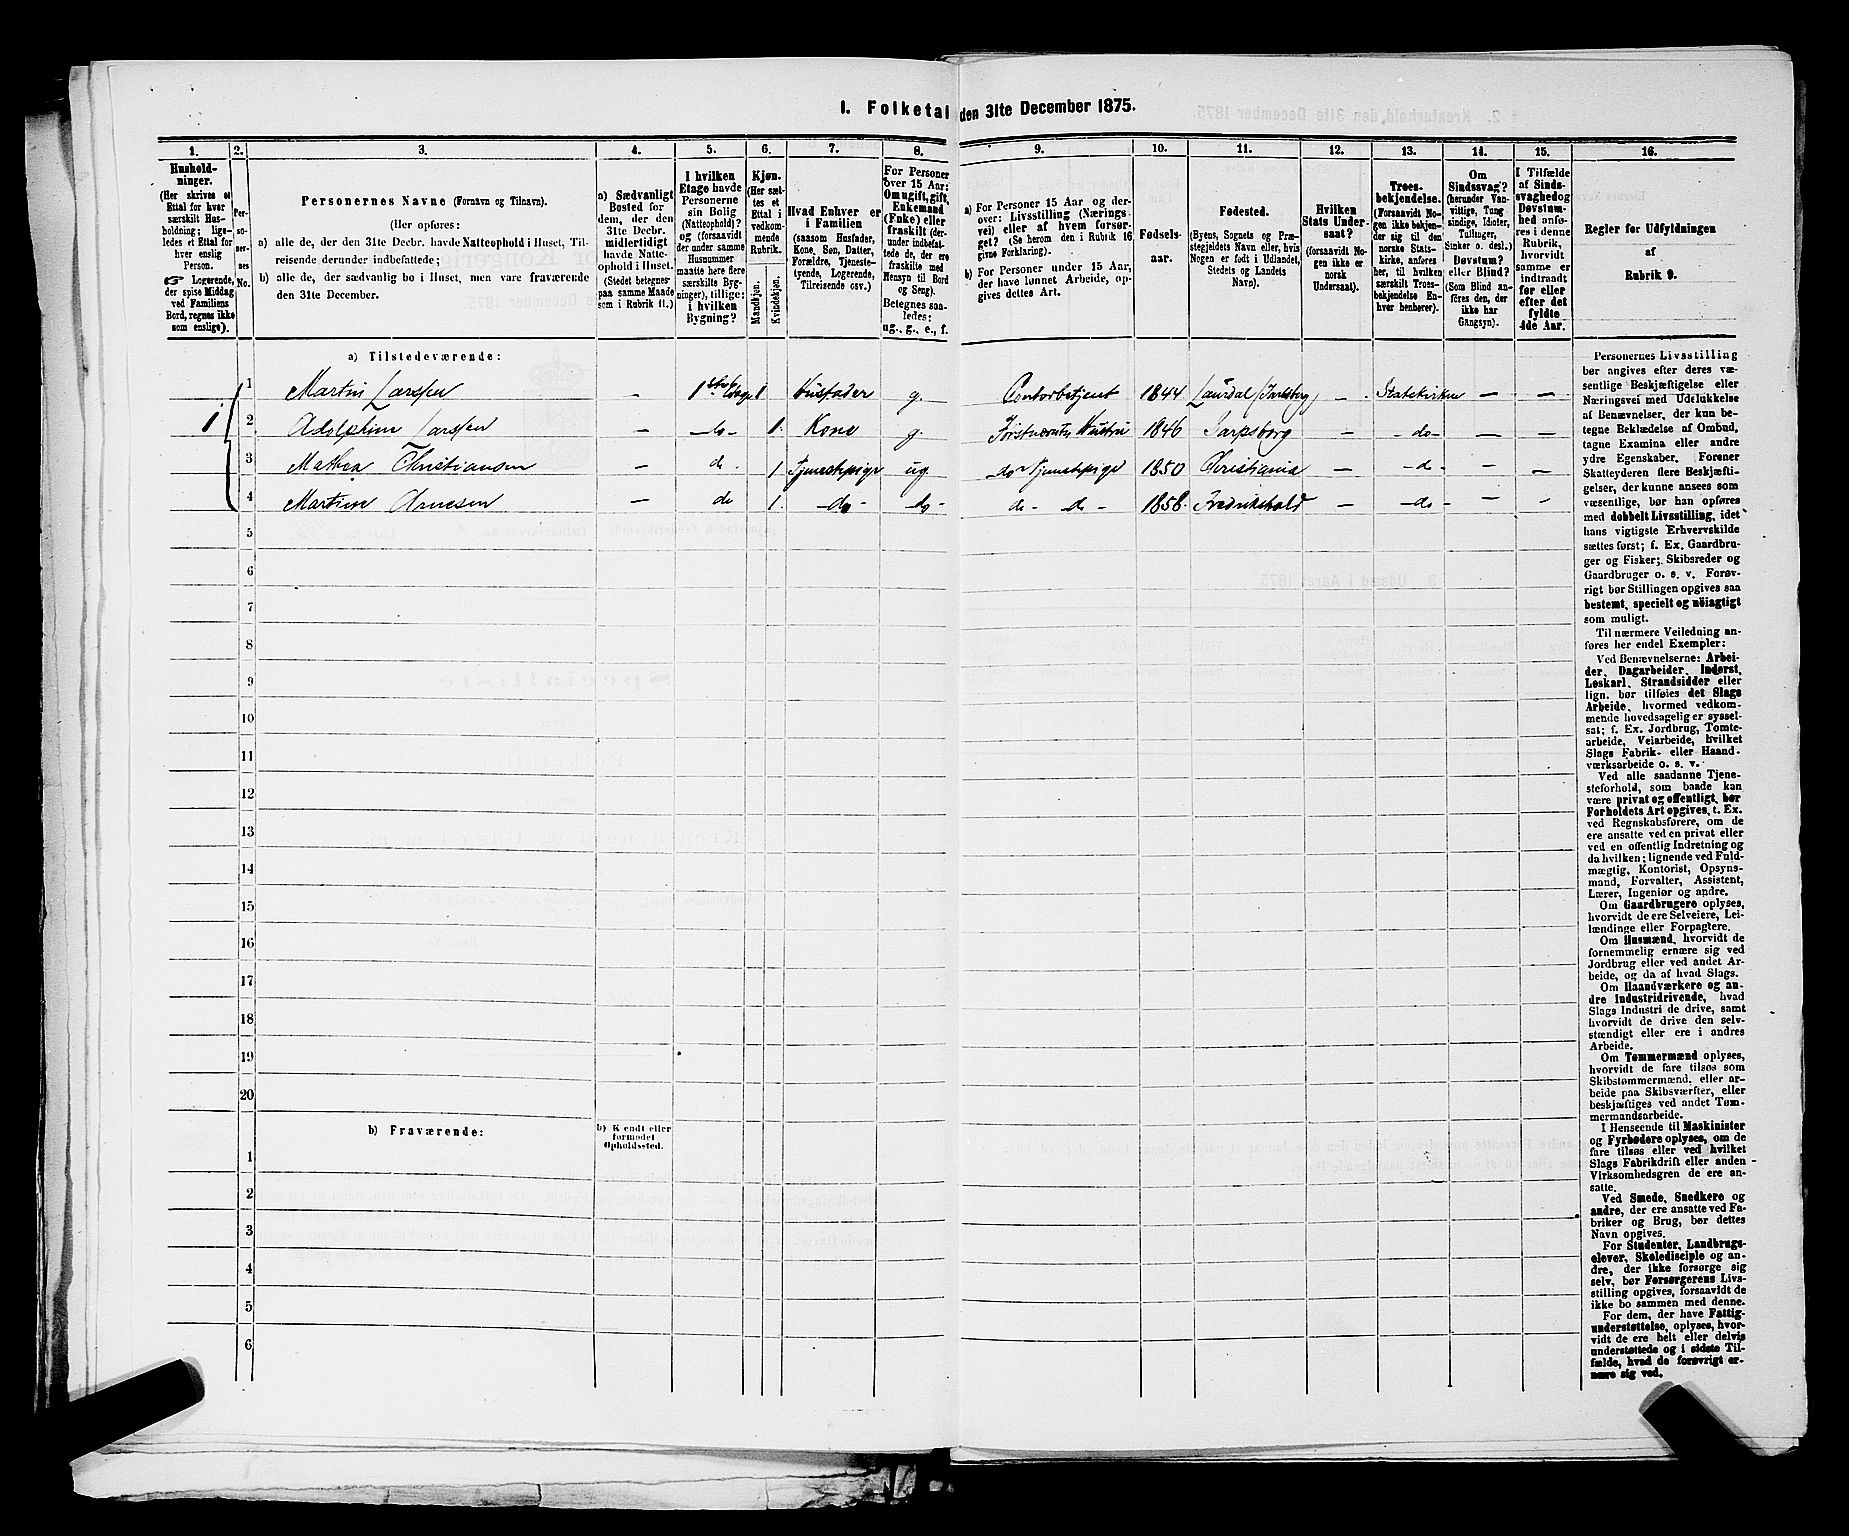 1. Folketal den 31te December 1875.
1. 2. 3. 4. 5. 6. 7. 8. 9. 10. 11. 12. 13. 14. 15. 16.
Hushold-
ninger.
(Her skrives et
Ettal for hver
særskilt Hus-
holdning; lige-
ledes et Ettal for
hver enslig
Person.
Logerende,
der spise Middag
ved Familiens
Bord, regnes ikke
som enslige).
Per-
so-
ner-
nes
No.
Personernes Navne (Fornavn og Tilnavn).
(Her opføres:
a) alle de, der den 31te Decbr. havde Natteophold i Huset, Til-
reisende derunder indbefattede;
b) alle de, der sædvanlig bo i Huset, men vare fraværende
den 31te December.
a) Sædvanligt
Bosted for
dem, der den
31te Decbr.
midlertidigt
havde Natte-
ophold i Huset.
(Stedet betegnes
paa samme Maade
som i Rubrik 11.)
I hvilken
Etage havde
Personerne
sin Bolig
(Natteophold)?
og (forsaavidt
der under samme
Husnummer
maatte høre flere
særskilte Byg-
ninger), tillige:
i hvilken
Bygning?
Kjøn.
(Her sæt-
tes et
Ettal i
vedkom-
mende
Rubrik.
Mandkjøn.
Kvindekjøn.
Hvad Enhver er
i Familien
(saasom Husfader,
Kone, Søn, Datter,
Forældre, Tjeneste-
tyende, Logerende,
Tilreisende osv.)
For Personer
over 15 Aar:
Om ugift, gift,
Enkemand
(Enke) eller
fraskilt (der-
under indbefat-
tede de, der
ere fraskilte med
Hensyn til Bord
og Seng).
Betegnes saa-
ledes:
ug., g., e., f.
a) For Personer 15 Aar og der-
over: Livsstilling (Nærings-
vei) eller af hvem forsør-
get? (Se herom den i Rubrik 16
givne Forklaring).
b) For Personer under 15 Aar,
der have lønnet Arbeide, op-
gives dettes Art.
Fødsels-
aar.
Fødested.
(Byens, Sognets og Præ-
stegjeldets Navn eller, hvis
Nogen er født i Udlandet,
Stedets og Landets
Navn).
Hvilken
Stats Under-
saat?
(forsaavidt No-
gen ikke er
norsk
Undersaat).
Troes-
bekjendelse.
(Forsaavidt No-
gen ikke bekjen-
der sig til den
norske Stats-
kirke, anføres
her, til hvilken
særskilt Troes-
bekjendelse En-
hver henhører).
Om
Sindssvag?
(herunder Van-
vittige, Tung-
sindige, Idioter,
Tullinger,
Sinker o. desl.)
Døvstum?
eller Blind?
(Som Blind an-
føres den, der
ikke har
Gangsyn).
I Tilfælde
af Sinds-
svaghed og
Døvstum-
hed anfø-
res i denne
Rubrik,
hvorvidt
samme er
indtraadt
før eller
efter det
fyldte
4de Aar.
Regler for Udfyldningen
af
Rubrik 9.
a) Tilstedeværende:
1 Martin Larssen — 1 Husfader g. Contorbetjent 1844 Laurdal / Jarlsberg — Statskirken — —
1 2 Adolphine Larssen — do 1 Kone g. Førstnævntes Hustru 1846 Sarpsborg — do — —
3 Mathea Christiansen — do 1 Tjenestepige ug do Tjenestepige 1850 Christiania — do — —
4 Martine Arnesen — do 1 do do do do 1858 Fredrikshald — do — —
5
6
7
8
9
10
11
12
13
14
15
16
17
18
19
20
b) Fraværende:
b) Kendt eller
formodet
Opholdssted.
1
2
3
4
5
6
Personernes Livsstilling
bør angives efter deres væ-
sentlige Beskjæftigelse eller
Næringsvei med Udelukkelse
af Benævnelser, der kun be-
tegne Beklædelse af Ombud,
tagne Examina eller andre
ydre Egenskaber. Forener
Skatteyderen flere Beskjæfti-
gelser, der kunne ansees som
væsentlige, bør han opføres
med dobbelt Livsstilling, idet
hans vigtigste Erhvervskilde
sættes først; f. Ex. Gaardbru-
ger og Fisker; Skibsreder og
Gaardbruger o. s. v. Forøv-
rigt bør Stillingen opgives saa
bestemt, specielt og nöiagtigt
som muligt.
Til nærmere Veiledning an-
føres her endel Exempler:
Ved Benævnelserne: Arbei-
der, Dagarbeider, Inderst,
Løskarl, Strandsidder eller
lign. bør tilføies det Slags
Arbeide, hvormed vedkom-
mende hovedsagelig er syssel-
sat; f. Ex. Jordbrug, Tomte-
arbeide, Veiarbeide, hvilket
Slags Fabrik- eller Haand-
værksarbeide o. s. v.
Ved alle saadanne Tjene-
steforhold, som baade kan
være privat og offentligt, bør
Forholdets Art opgives, t. Ex.
ved Regnskabsførere, om de
ere ansatte ved en privat eller
ved en offentlig Indretning og
da hvilken; lignende ved Fuld-
mægtig, Kontorist, Opsyns-
mand, Forvalter, Assistent,
Lærer, Ingeniør og andre.
Om Gaardbrugere oplyses,
hvorvidt de ere Selveiere, Lei-
lændinge eller Forpagtere.
Om Husmænd, hvorvidt de
fornemmelig ernære sig ved
Jordbrug eller ved andet Ar-
beide, og da af hvad Slags.
Om Haandværkere og an-
dre Industridrivende, hvad
Slags Industri de drive, samt
hvorvidt de drive den selv-
stændigt eller ere i andres
Arbeide.
Om Tømmermænd oplyses,
hvorvidt de fare tilsøs som
Skibstømmermænd, eller ar-
beide paa Skibsværfter, eller
beskjæftiges ved andet Tøm-
mermandsarbeide.
I Henseende til Maskinister
og Fyrbødere oplyses, om de
fare tilsøs eller ved hvilket
Slags Fabrikdrift eller anden
Virksomhedsgren de ere an-
satte.
Ved Smede, Snedkere og
andre, der ere ansatte ved Fa-
briker og Brug, bør dettes
Navn opgives.
For Studenter, Landbrugs-
elever, Skoledisciple og an-
dre, der ikke forsørge sig
selv, bør Forsørgerens Livs-
stilling opgives, forsaavidt de
ikke bo sammen med denne.
For dem, der have Fattig-
understøttelse, oplyses, hvor-
vidt de ere helt eller delvis
understøttede og i sidste Til-
fælde, hvad de forøvrigt er-
nære sig ved.